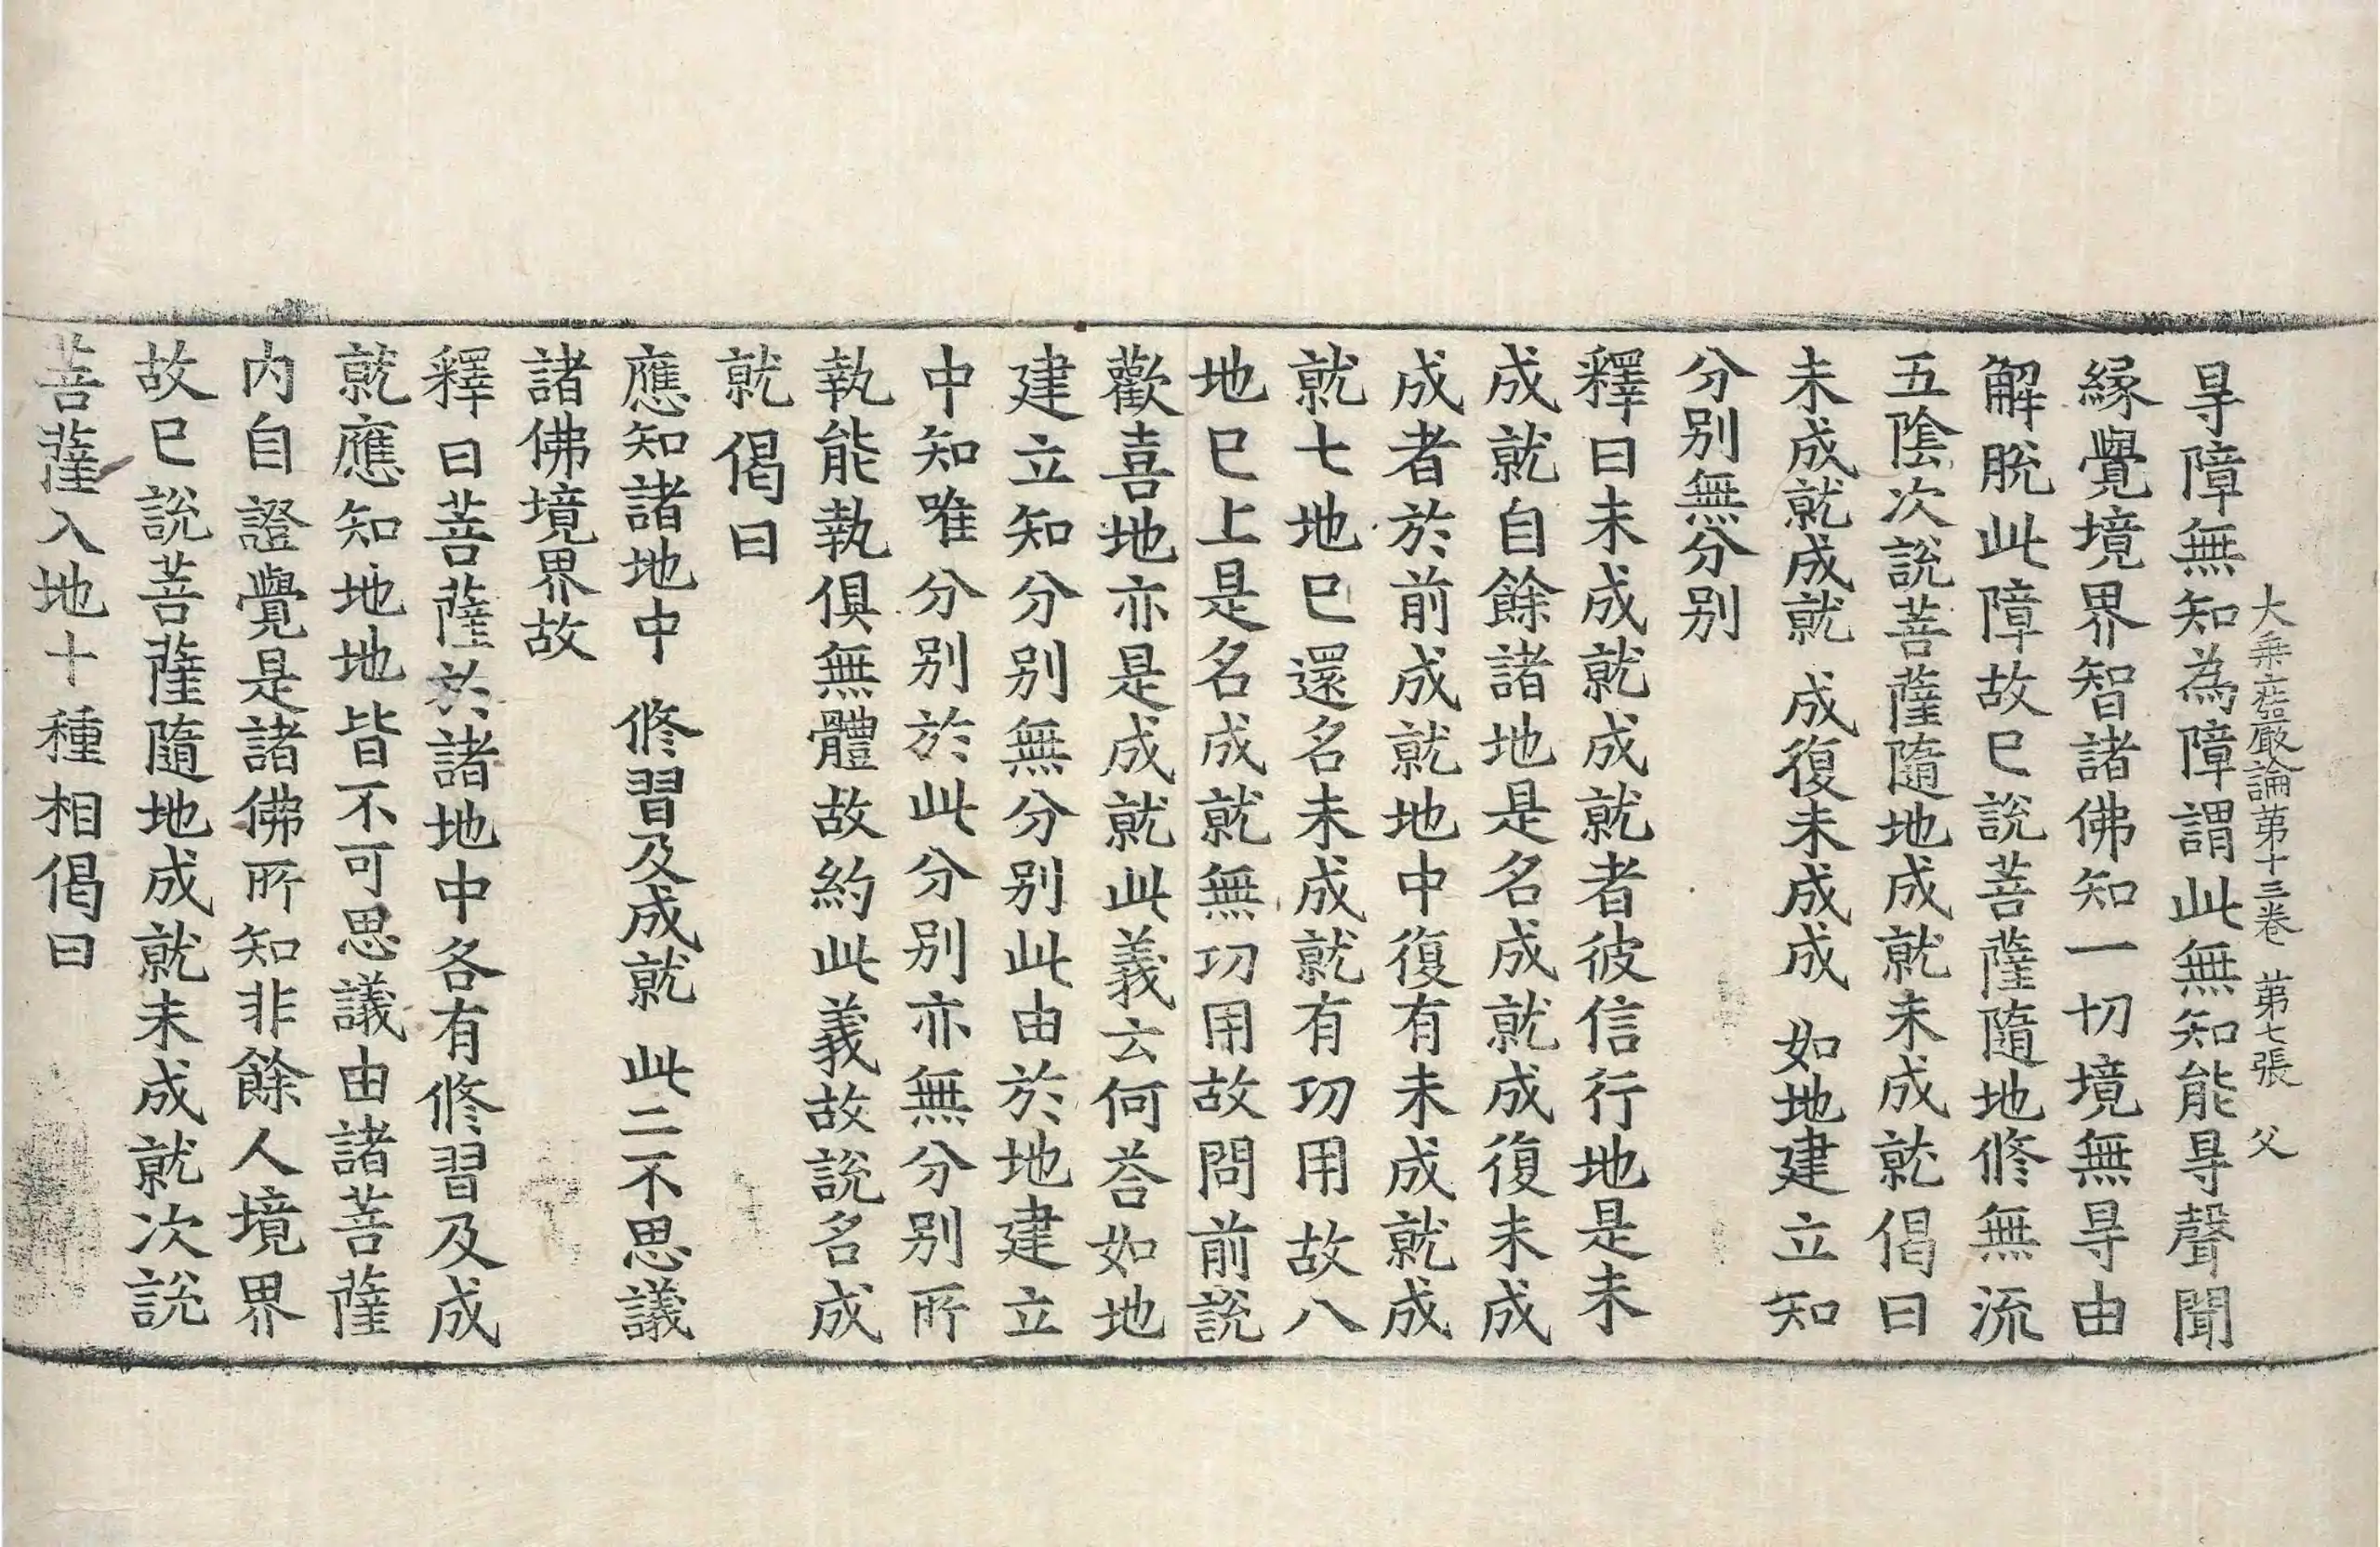 大乘莊嚴論第十三卷 第七張 父
㝵障無知為障謂此無知能㝵聲聞
縁覺境界智諸佛知一切境無㝵由
解脫此障故巳說菩薩隨地修無流
五陰次說菩薩隨地成就未成就偈曰
未成就成就 成復未成成 如地建立知
分別無分別
釋曰未成就成就者彼信行地是未
成就自餘諸地是名成就成復未成
成者於前成就地中復有未成就成
就七地巳還名未成就有功用故八
地巳上是名成就無功用故問前說
歡喜地亦是成就此義云何荅如地
建立知分別無分別此由於地建立
中知唯分別於此分別亦無分別所
執能執俱無體故約此義故說名成
就偈曰
應知諸地中 修習及成就 此二不思議
諸佛境界故
釋曰菩薩於諸地中各有修習及成
就應知地地皆不可思議由諸菩薩
内自證覺是諸佛所知非餘人境界
故巳說菩薩隨地成就未成就次說
菩薩入地十種相偈曰